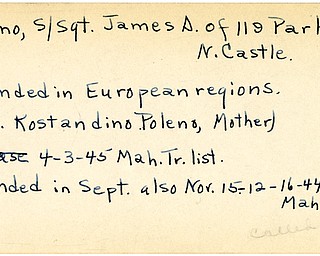 no, S/Sgt. James D. of 118 Park
N. Castle.
nded in European regions.
. Kostandino Poleno, Mother)
4-3-45 Mah. Tr. list.
nded in Sept. also Nov. 15-12-16-44
Mah